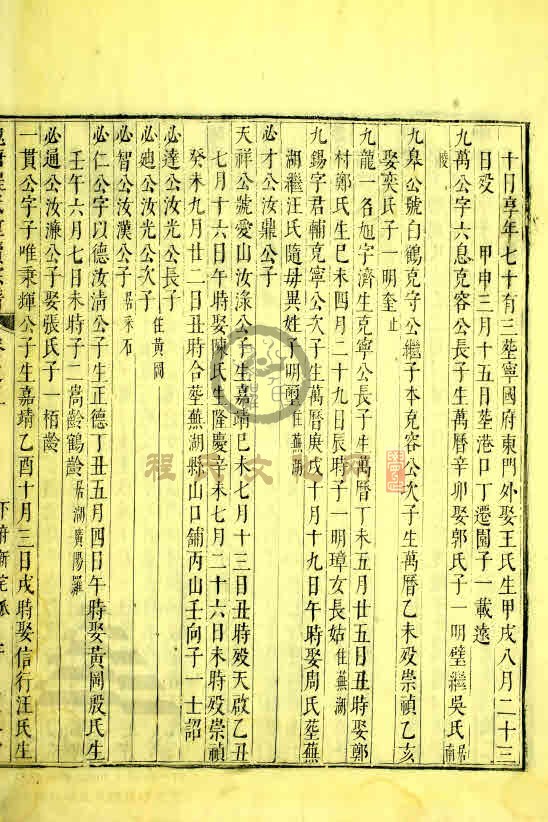 十日享年七十有三塟寧國府東門外娶王氏生甲戌八月二十三
日歿 甲申三月十五日塟港口丁遷園子一載遠
九萬公字六息克容公長子生萬曆辛卯娶郭氏子一明璧繼吳氏居南
陵
九臯公號白鶴克守公繼子本克容公次子生萬曆乙未歿崇禎乙亥
娶奕氏子一明奎止
九龍一名旭字濟生克寧公長子生萬曆丁未五月廿五日丑時娶鄭
村鄭氏生巳未四月二十九日辰時子一明璋女長姑住蕪湖
九錫字君輔克寧公次子生萬曆庚戌十月十九日午時娶周氏塟蕪
湖繼汪氏隨母異姓子明璽住蕪湖
必才公汝鼎公子
天祥公號愛山汝淥公子生嘉靖巳未七月十三日丑時歿天啟乙丑
七月十六日午時娶陳氏生隆慶辛未七月二十六日未時歿崇禎
癸未九月廿二日丑時合塟蕪湖縣山口舖丙山壬向子一士詔
必達公汝光公長子
必逈公汝光公次子 住黃岡
必智公汝漢公子 居采石
必仁公字以德汝淸公子生正德丁丑五月四日午時娶黃岡殷氏生
壬午六月七日未時子二嵩齡鶴齡居湖廣陽羅
必通公汝濂公子娶張氏子一栢齡
一貫公字子唯秉輝公子生嘉靖乙酉十月三日戌時娶信行汪氏生
程氏文化网